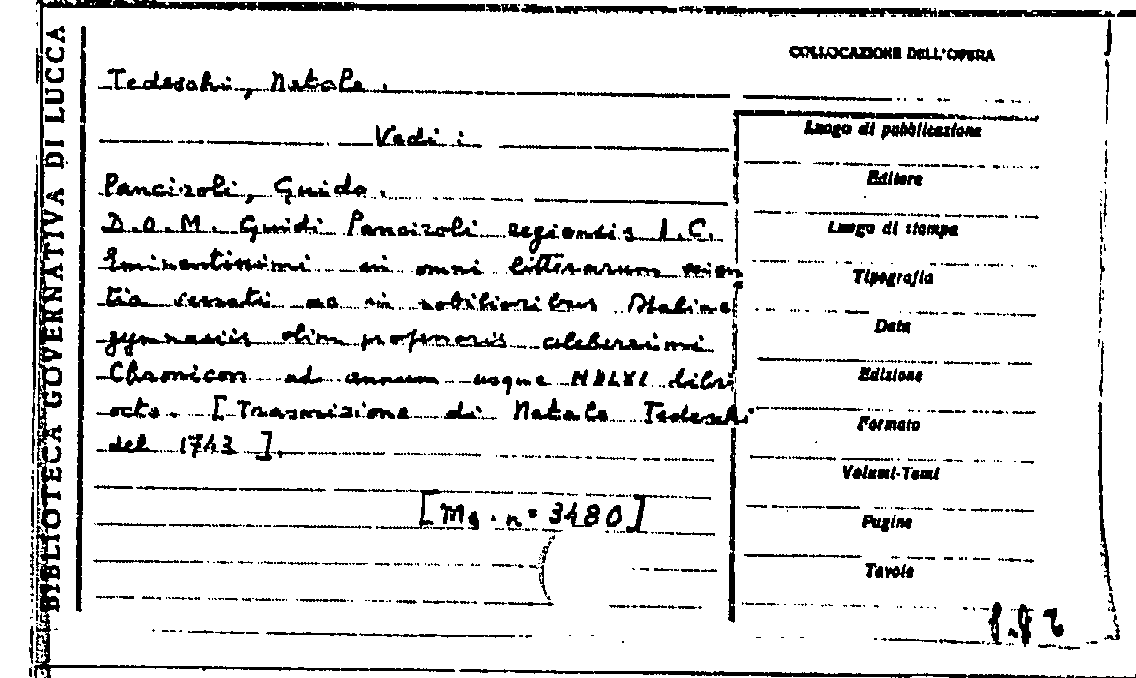 BIBLIOTECA GOVERNATIVA DI LUCCA
COLLOCAZIONE DELL'OPERA
Tedeschi, Natale.
Vedi:
Panciroli, Guido.
D.O.M. Guidi Panciroli regiensis I.C.
Eminentissimi in omni litterarum scien
tia versati ac in nobilioribus Italiae
gymnasiis olim professoris celeberrimi
Chronicon ad annum usque MDLXI libri
octo. [Trascrizione di Natale Tedeschi
del 1743].
[Ms. n° 3480]
Luogo di pubblicazione
Editore
Luogo di stampa
Tipografia
Data
Edizione
Formato
Volumi-Tomi
Pagine
Tavole